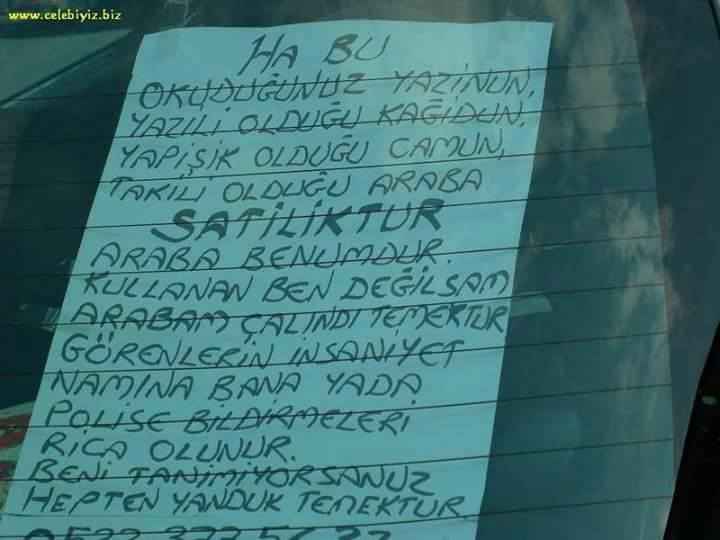 www.celebiyiz.biz
HA BU
OKUDUĞUNUZ YAZİNUN,
YAZILI OLDUĞU KAĞIDUN,
YAPIŞIK OLDUĞU CAMUN,
TAKİLİ OLDUĞU ARABA
SATİLİKTUR
ARABA BENUMDUR.
KULLANAN BEN DEĞİLSAM
ARABAM ÇALINDI TEMEKTUR
GÖRENLERİN İNSANİYET
NAMINA BANA YADA
POLİSE BİLDİRMELERİ
RİCA OLUNUR.
BENİ TANİMİYORSANUZ
HEPTEN YANDUK TEMEKTUR.